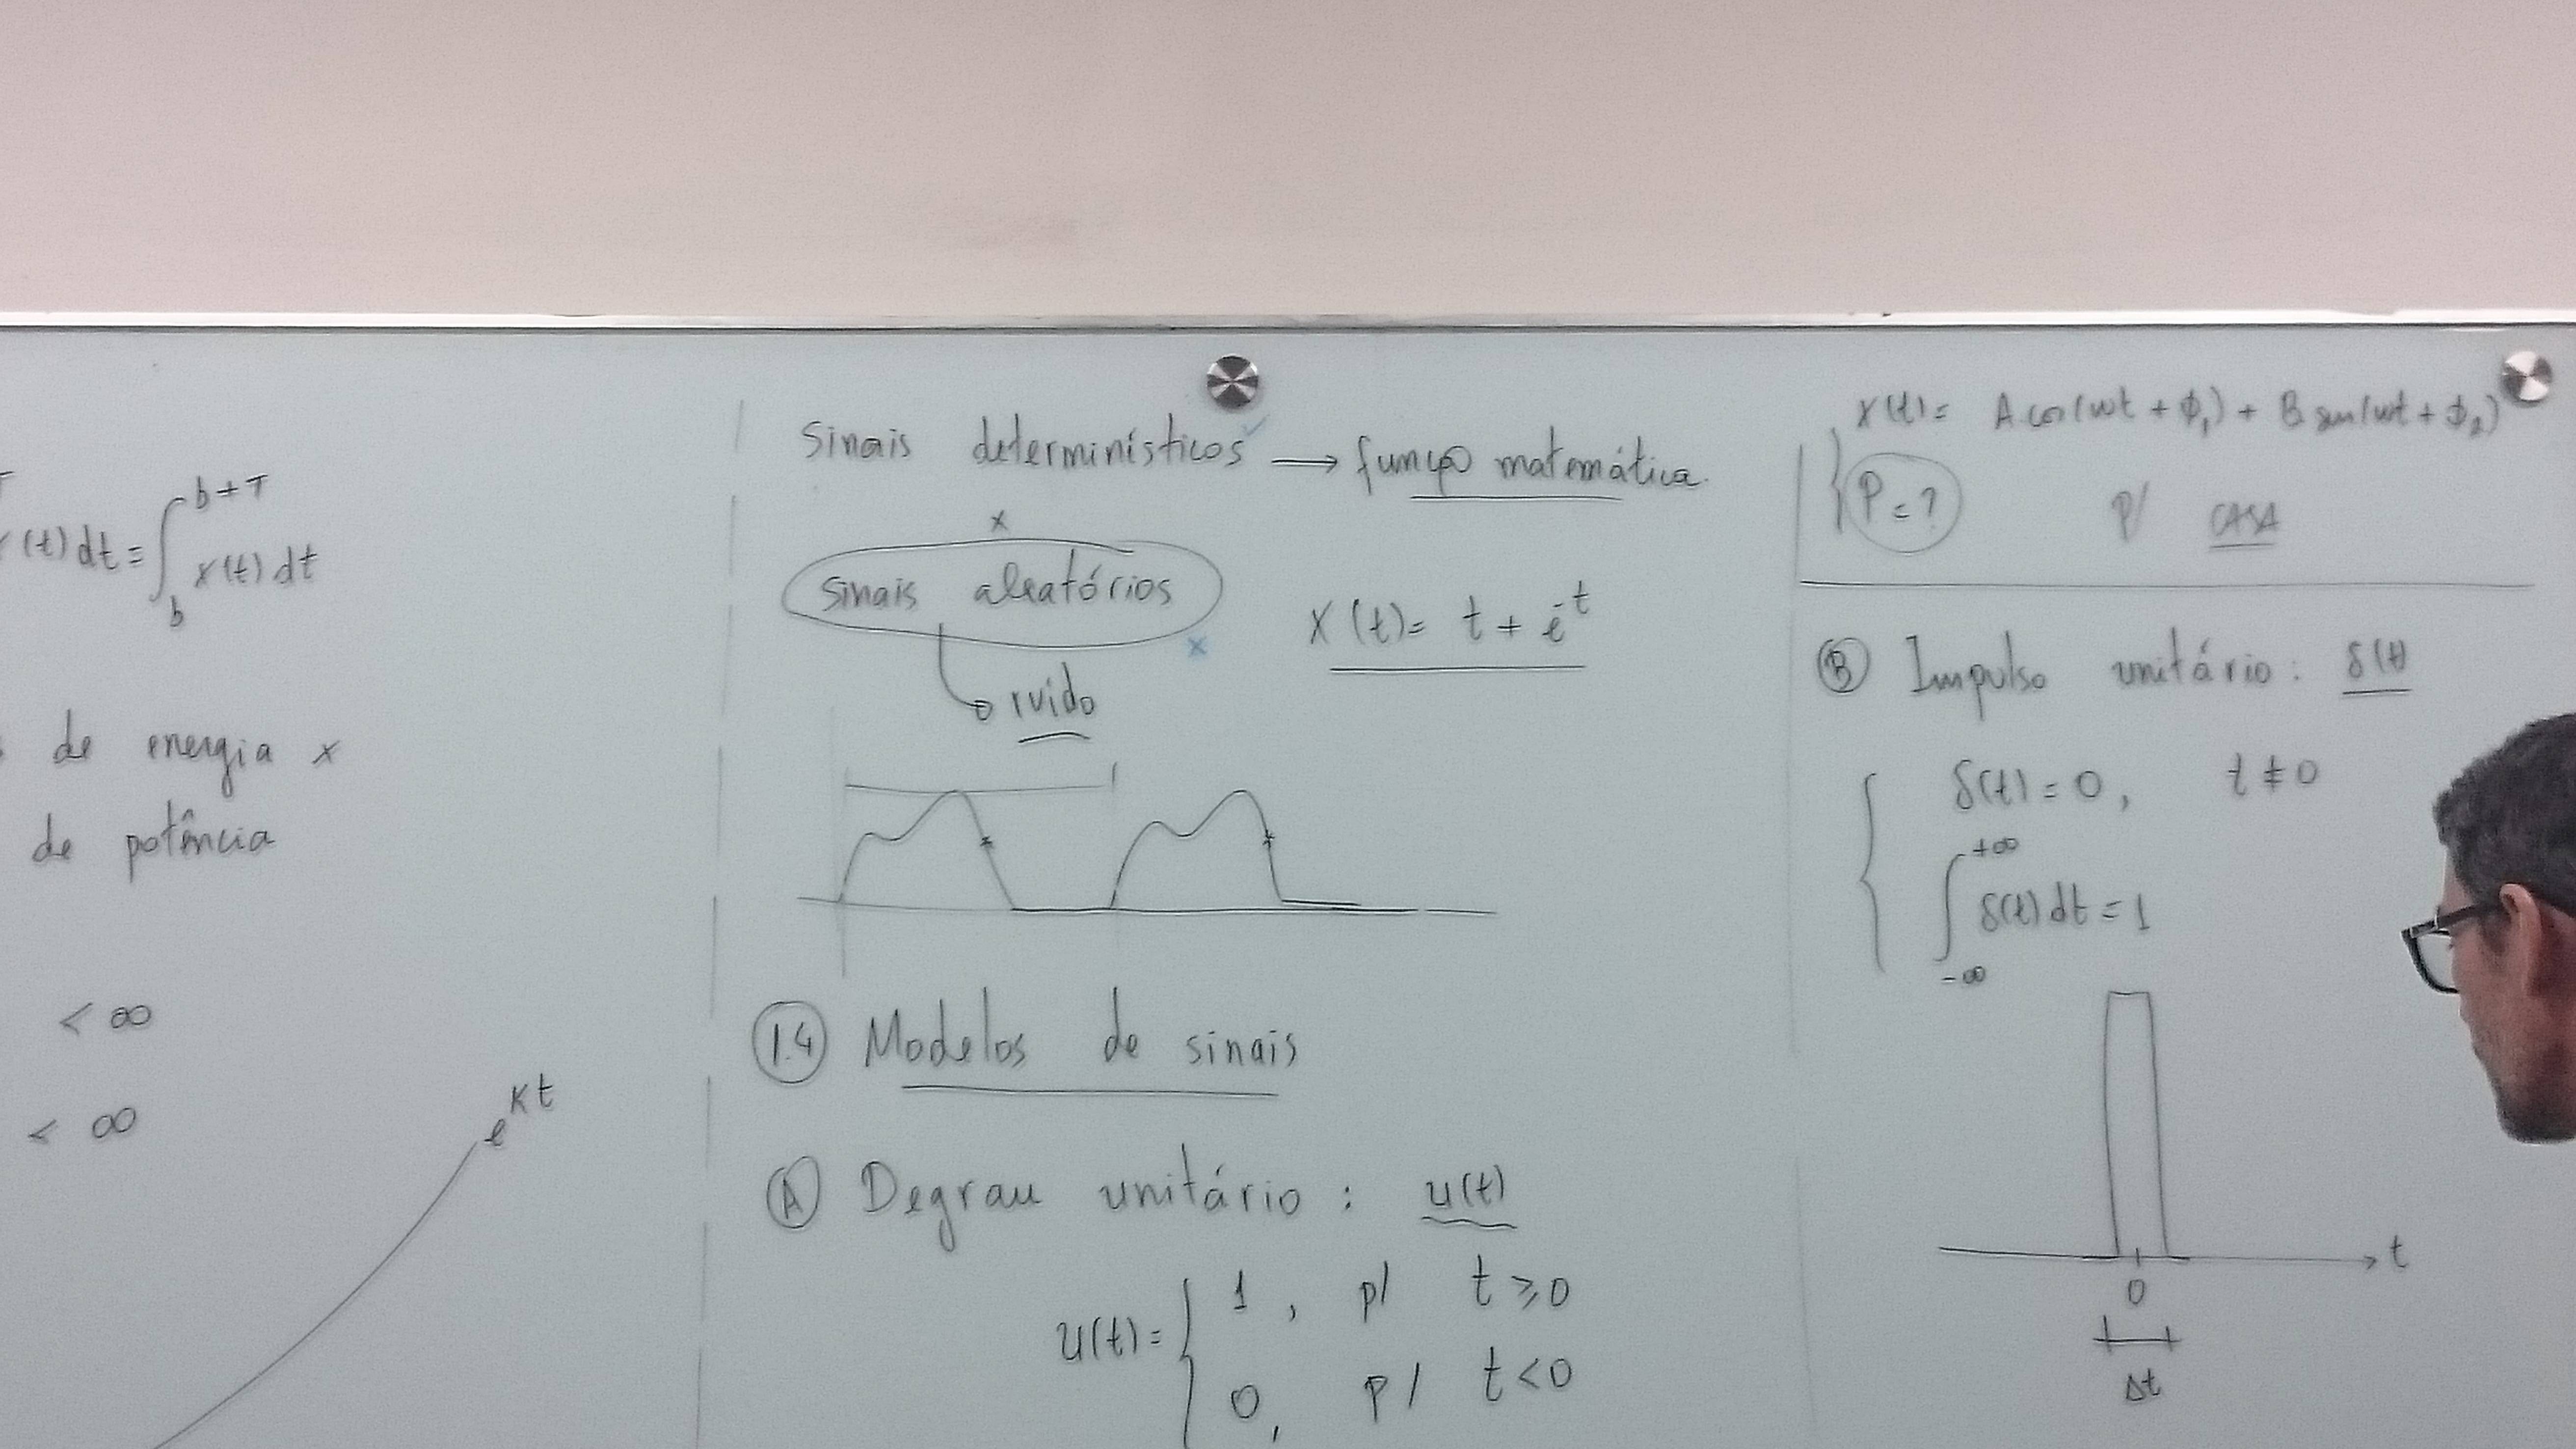 (t) dt = ∫_b^{b+T} x(t) dt
de energia x
de potência
< ∞
< ∞
e^{Kt}
Sinais determinísticos → função matemática.
x
Sinais aleatórios
x
ruído
x(t) = t + e^{-t}
1.4 Modelos de sinais
A Degrau unitário : u(t)
u(t) = { 1 , p/ t ≥ 0
0 , p/ t < 0
x(t) = A cos(wt + ϕ₁) + B sen(wt + ϕ₂)
P = ? p/ CASA
B Impulso unitário : δ(t)
δ(t) = 0, t ≠ 0
∫_{-∞}^{+∞} δ(t) dt = 1
t
0
Δt